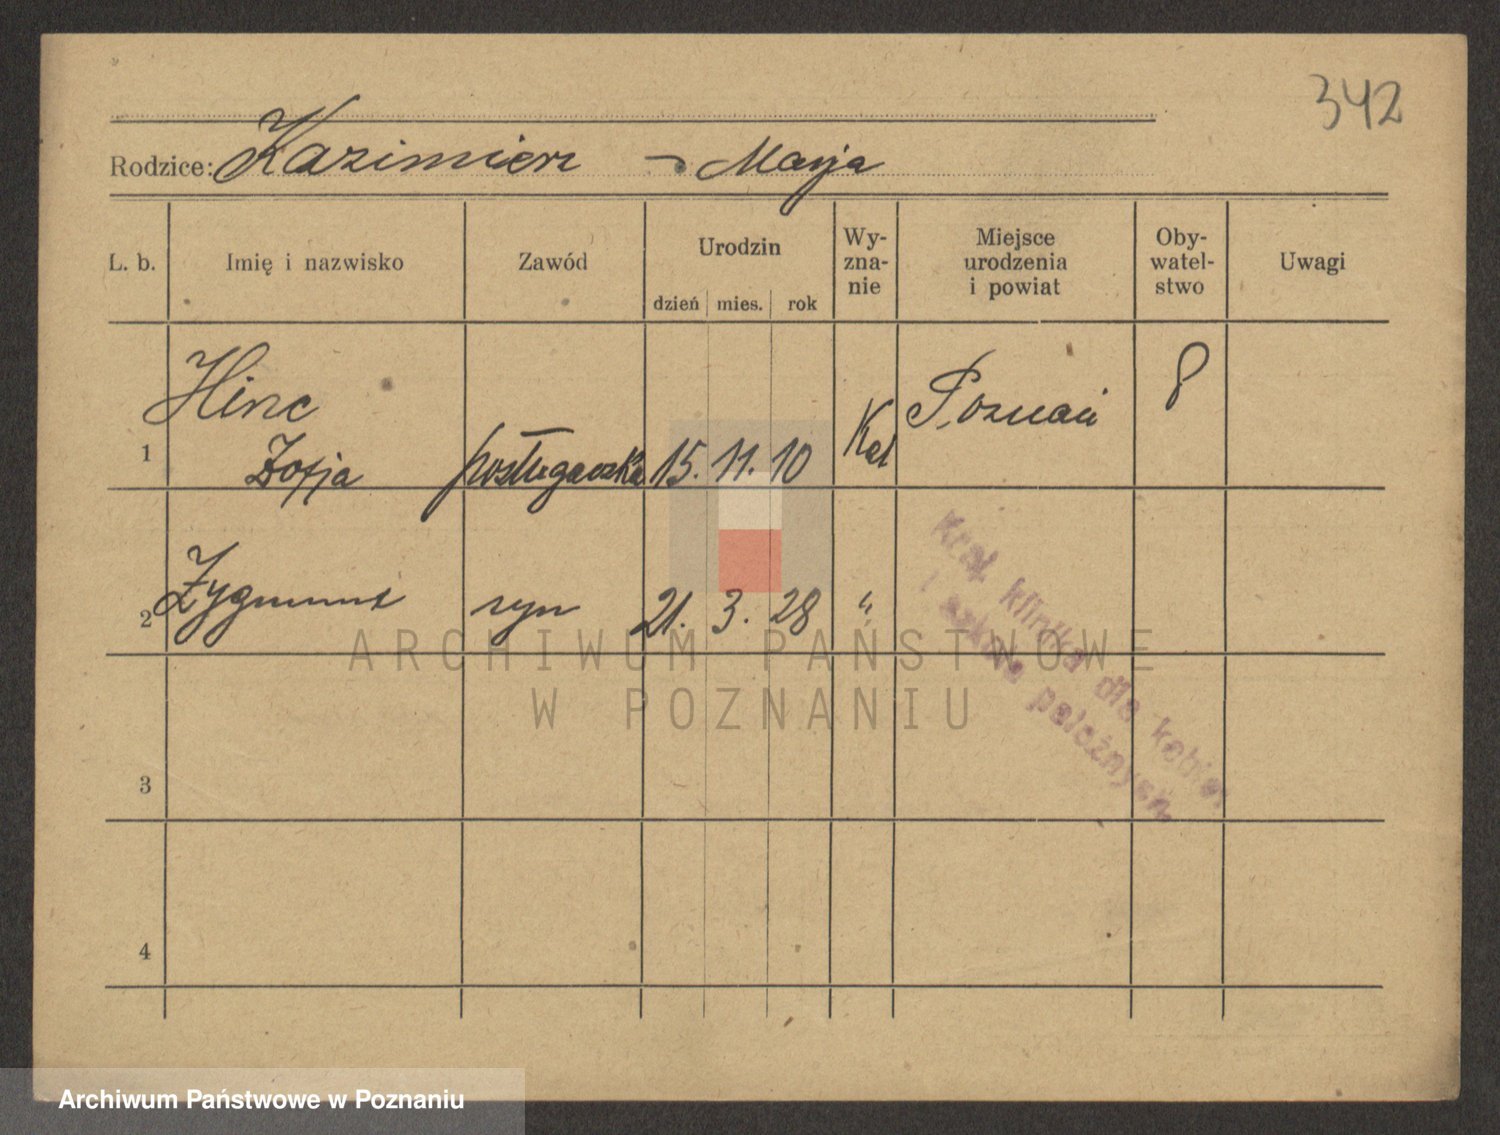 342
Rodzice: Kazimierz – Marja
L. b. Imię i nazwisko Zawód Urodzin dzień mies. rok Wy-zna-nie Miejsce urodzenia i powiat Oby-watel-stwo Uwagi
Hinc Poznań
1 Zofja posługaczka 15. 11. 10 Kat
2 Zygmunt syn 21. 3. 28 "
3
4
Kraj. klinika dla kobiet
i szkoła położnych
ARCHIWUM PAŃSTWOWE
W POZNANIU
Archiwum Państwowe w Poznaniu